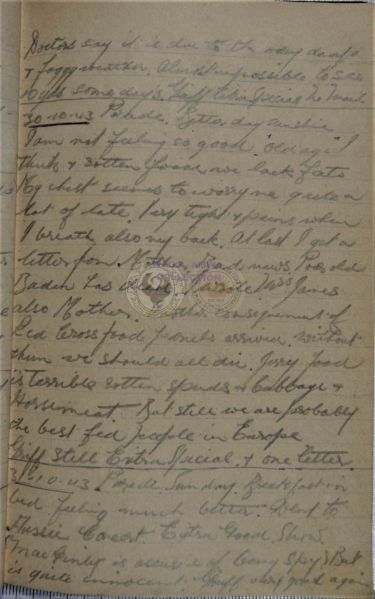 Doctors say it is due to the very damp
& foggy weather. Almost impossible to see
10 yds some days. Griff Extra Special No mail
30-10-43 Parade. Better day sunshine
I am not feeling so good. Old age I
think & rotten food we lack fats
My chest seems to worry me quite a
lot of late. Very tight & pains when
I breath also my back. At last I get a
letter from Bad news. Poor old
Baden has Mrs Jones
also Mother. consignment of
Red Cross food parcels arrives. Without
them we should all die. Jerry food
is terrible rotten spuds & Cabbage &
Horsemeat. But still we are probably
the best fed people in Europe
Griff Still Extra Special. & one letter.
31-10-43 Parade. Sunday. Breakfast in
bed feeling much better. Went to
Aussie Concert Extra Good Show
is accused of being Spy. But
is quite innocent. Griff very good again